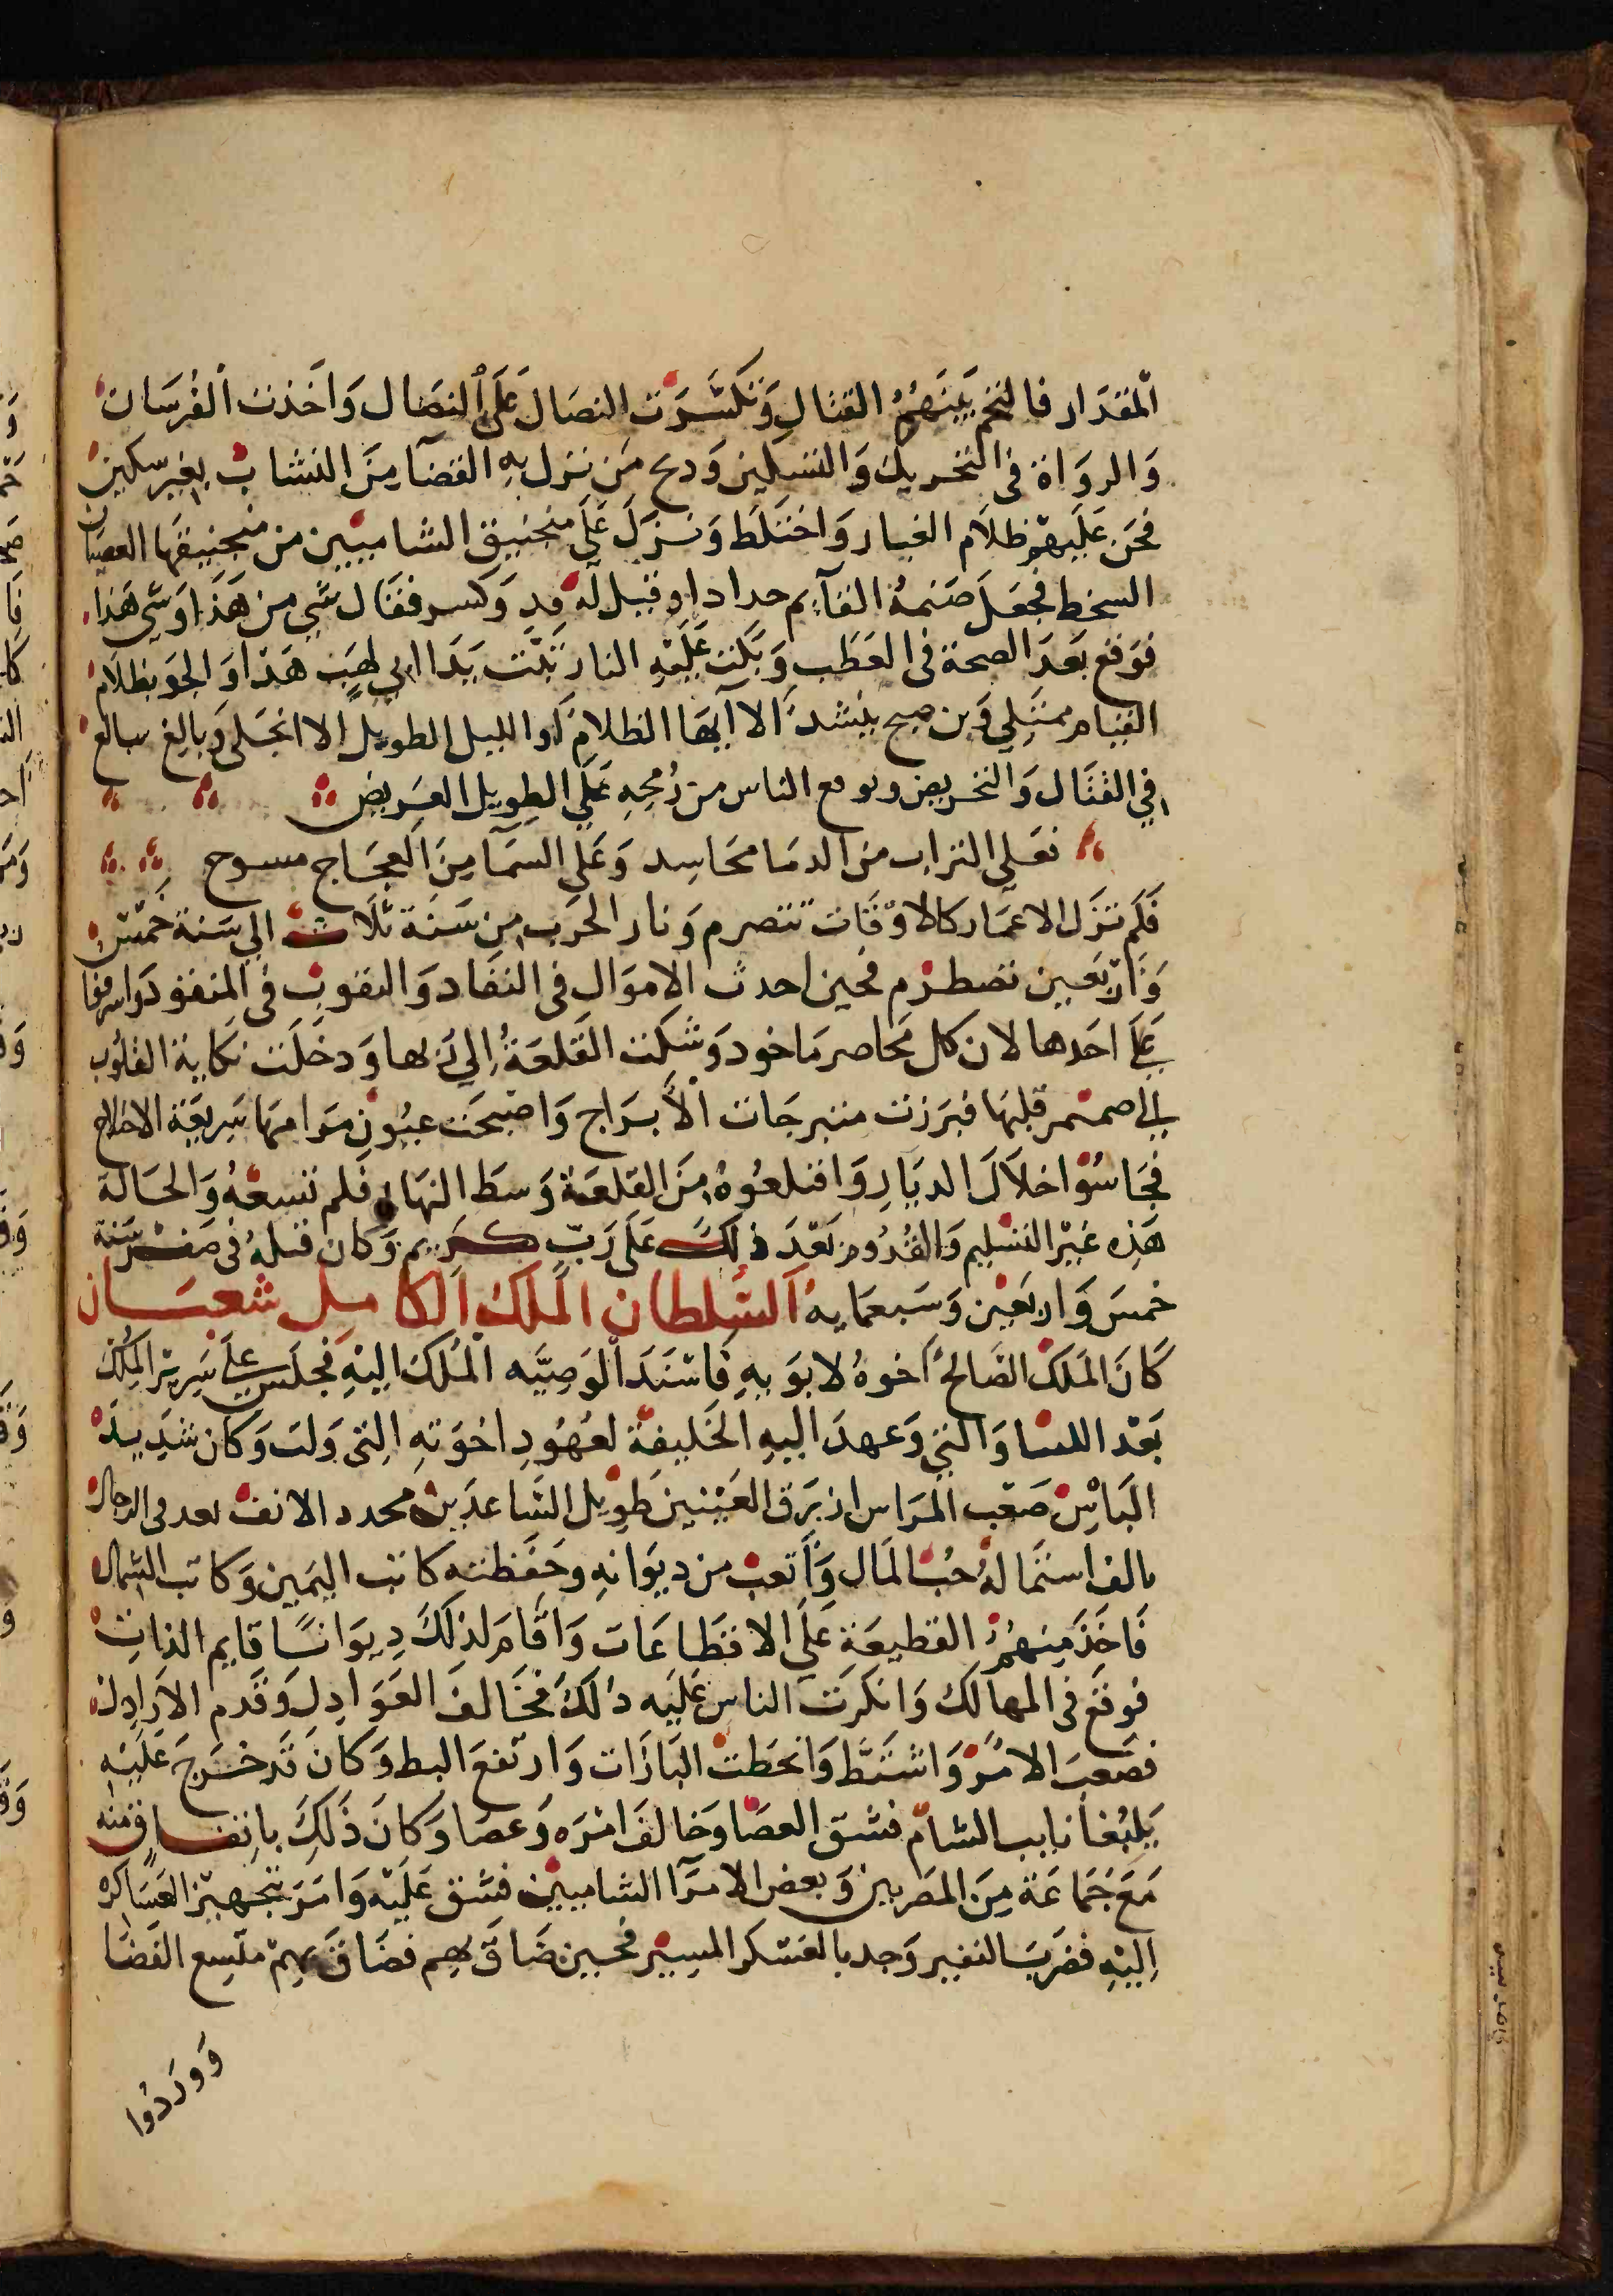 المقدار فالتحم بينهم القتال وتكسرت النصال على النصال واخذت الفرسان
والرواة في التحريك والتسكين وذبح من نزل به القضا من النشاب بغير سكين
فجن عليهم ظلام الغبار واختلط ونزل على منجنيق الشاميين من منجنيقها العصيان
السخط فجعل صنمه القايم جدادا وقيل له قد وكسر فقال شي من هذا وشي هذا
فوقع بعد الصحة في العطب وبكت عليه النار تبت يدا ابي لهب هذا والجو بظلام
القتام ممتلي ومن صبح ينشد الا ايها الظلام او الليل الطويل الا انجلى وبالغ يبالغ
في القتال والتحريض ويوقع الناس من رمحه على الطويل العريض
فعلى التراب من الدما محاسد وعلى السما من العجاج مسوح
فلم تزل الاعمار كالاوقات تتصرم ونار الحرب من سنة ثلاث الي سنة خمس
واربعين تضطرم فحين اخذت الاموال في النفاد والنقوب في المنفوذ واشرفوا
على اخذها لان كل محاصر ماخوذ وشكت القلعة الي ربها ودخلت نكاية القلوب
الي صميم قلبها فبرزت متبرجات الابراج واصبحت عيون مرامها سريعة الاختلاج
فجاسوا خلال الديار واقتلعوه من القلعة وسط النهار فلم تسعه والحالة
هذه غير التسليم والقدوم بعد ذلك على رب كريم وكان قتله في صفر سنة
خمس واربعين وسبعمايه السلطان الملك الكامل شعبان
كان الملك الصالح اخوه لابويه فاسند الوصيه الملك اليه فجلس على سرير الملك
بعد اللتيا والتي وعهد اليه الخليفة لعهود اخوته التي ولت وكان شديد
الباس صعب المراس ازرق العينين طويل الساعدين محدد الانف يعد في الرجال
بالف استماله حب المال واتعب من ديوانه وحفظته كاتب اليمين وكاتب الشمال
فاخذ منهم القطيعة على الاقطاعات واقام لذلك ديوانا قايم الذات
فوقع في المهالك وانكرت الناس عليه ذلك فخالف العوادل وقدم الاراذل
فصعب الامر واشتط وانحطت البازات وارتفع البط وكان قد خرج عليه
يلبغا نايب الشام فشق العصا وخالف امره وعصا وكان ذلك باتفاق منه
مع جماعة من المصريين وبعض الامرا الشاميين فشق عليه وامر بتجهيز العساكر
اليه فضرب النفير وجد بالعسكر المسير فحين ضاق بهم فضاق بهم متسع الفضا
ووردوا